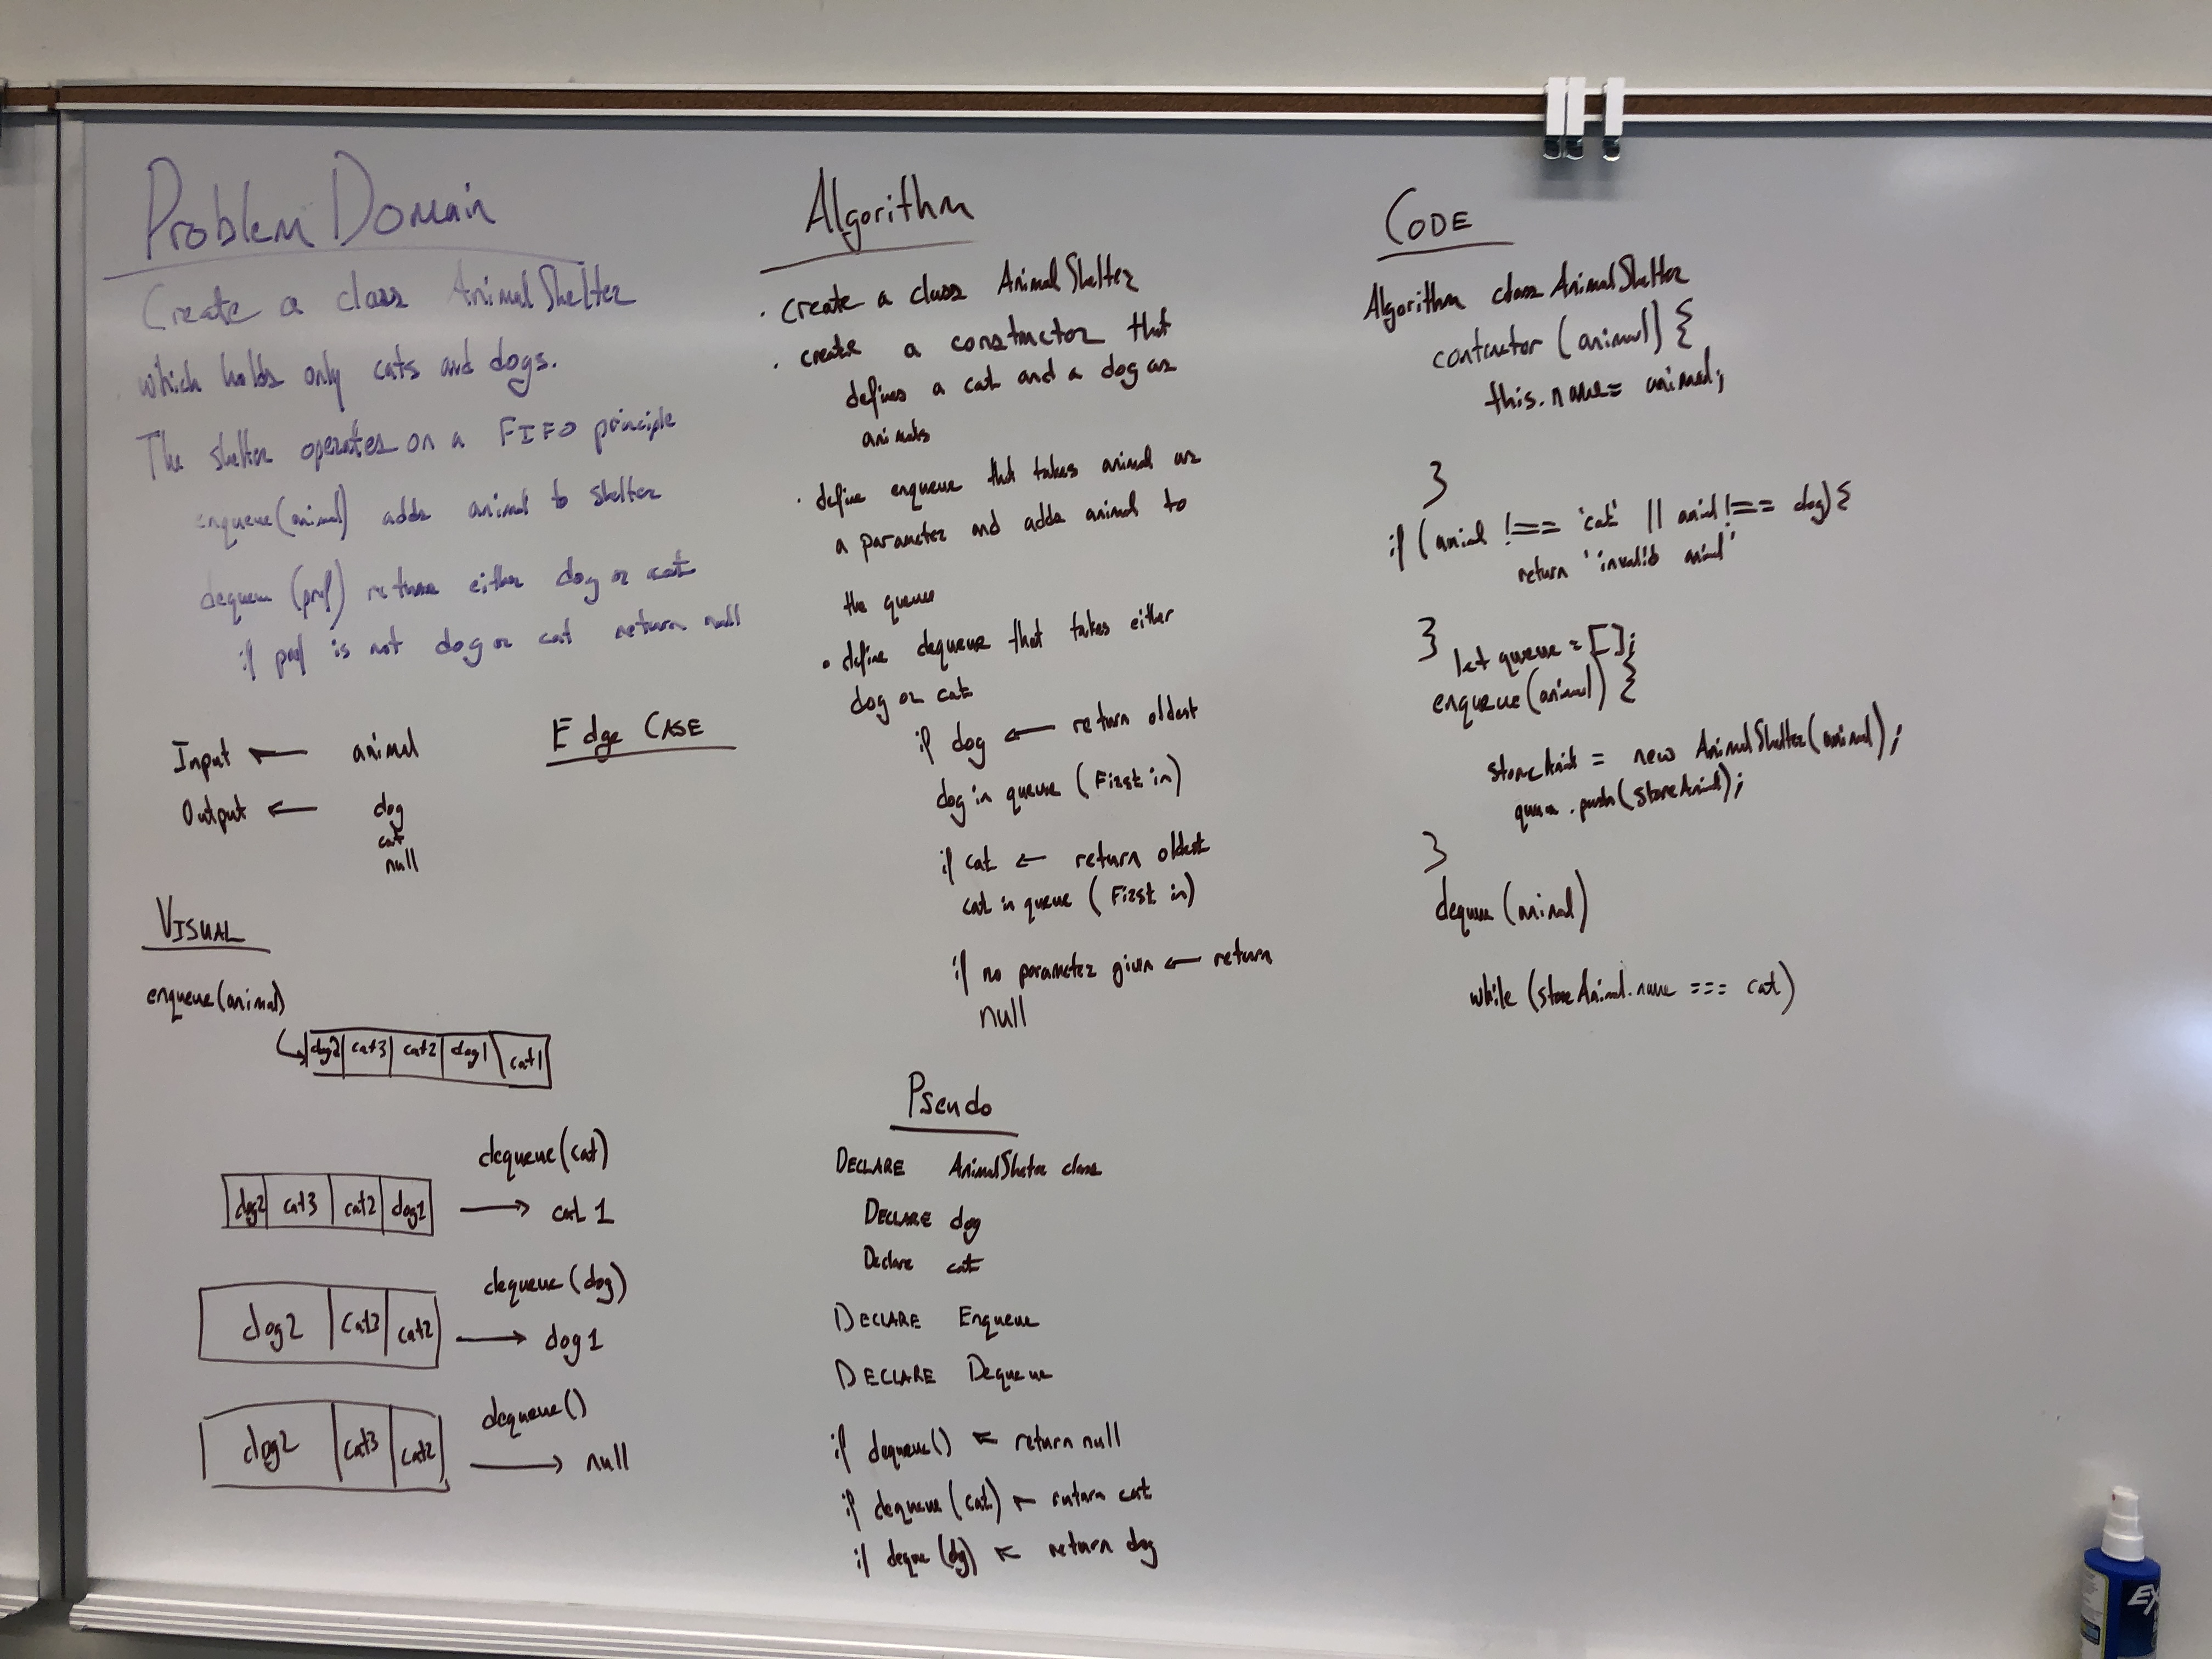 Problem Domain
Create a class AnimalShelter
which holds only cats and dogs.
The shelter operates on a FIFO principle
enqueue(animal) adds animal to shelter
dequeue (pref) returns either dog or cat
if pref is not dog or cat return null
Input ← animal
Output ← dog
cat
null
Edge CASE
VISUAL
enqueue(animal)
dog2 cat3 cat2 dog1 cat1
dequeue(cat)
dog2 cat3 cat2 dog1 → cat 1
dequeue(dog)
dog2 cat3 cat2 → dog1
dequeue()
dog2 cat3 cat2 → null
Algorithm
· create a class AnimalShelter
· create a constructor that
defines a cat and a dog as
animals
· define enqueue that takes animal as
a parameter and adds animal to
the queue
· define dequeue that takes either
dog or cat
if dog ← return oldest
dog in queue (First in)
if cat ← return oldest
cat in queue (First in)
if no parameter given ← return
null
Pseudo
DECLARE AnimalShelter class
DECLARE dog
Declare cat
DECLARE Enqueue
DECLARE Dequeue
if dequeue() ← return null
if dequeue(cat) ← return cat
if deque(dog) ← return dog
CODE
Algorithm class AnimalShelter
contructor (animal) {
this.name = animal;
}
if (animal !== 'cat' || animal !== dog) {
return 'invalid animal'
}
let queue = [];
enqueue(animal) {
storeAnimal = new AnimalShelter(animal);
queue.push(storeAnimal);
}
dequeue(animal)
while (storeAnimal.name === cat)
EX